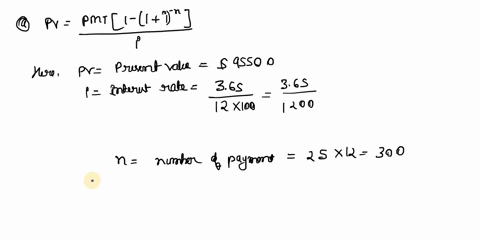 ⓐ PV = PMT[1-(1+i)^-n] / i
Here, PV = Present value = $ 95500
i = Interest rate = 3.65 / 12×100 = 3.65 / 1200
n = number of payment = 25 × 12 = 300